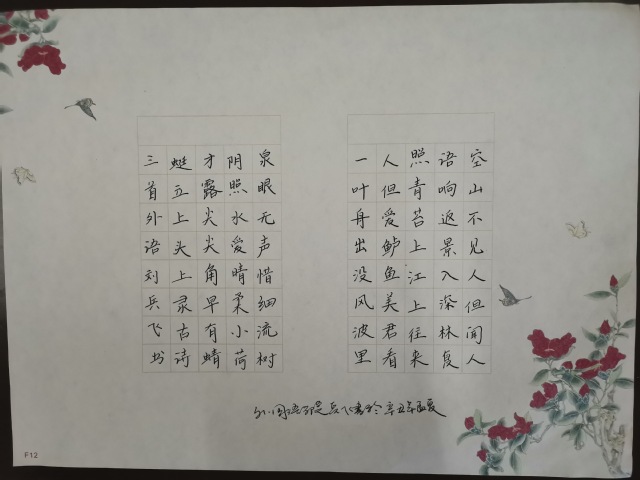 空山不见人但闻人
语响返景入深林复
照青苔上江上往来
人但爱鲈鱼美君看
一叶舟出没风波里
泉眼无声惜细流树
阴照水爱晴柔小荷
才露尖尖角早有蜻
蜓立上头上录古诗
三首外语刘兵飞书
外国语 兵飞书于辛丑 夏
F12